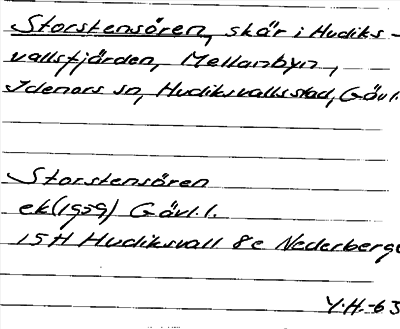 Storstensören, skär i Hudiks-
vallsfjärden, Mellanbyn,
Idenors sn, Hudiksvalls stad, Gävl.
Storstensören
ek (1959) Gävl.l.
15H Hudiksvall 8e Nederberge
Y.H.-63